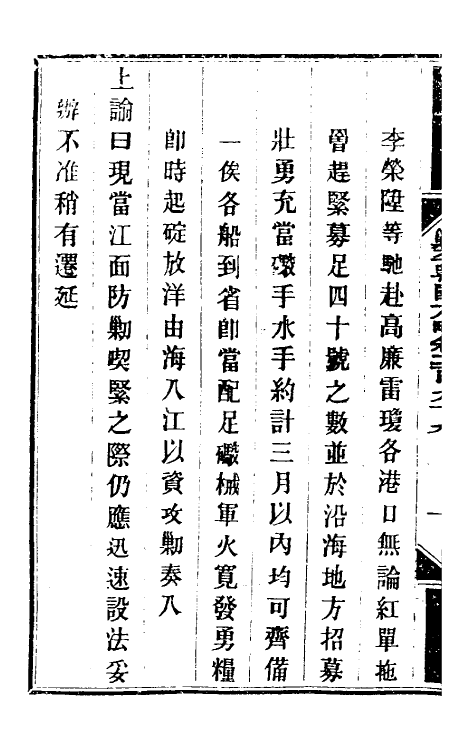 李榮陞等馳赴高廉雷瓊各港口無論紅單拖
罾趕緊募足四十號之數並於沿海地方招募
壯勇充當礮手水手約計三月以內均可齊備
一俟各船到省即當配足礮械軍火寬發勇糧
即時起碇放洋由海入江以資攻勦奏入
上諭曰現當江面防勦喫緊之際仍應迅速設法妥
辦不准稍有遷延